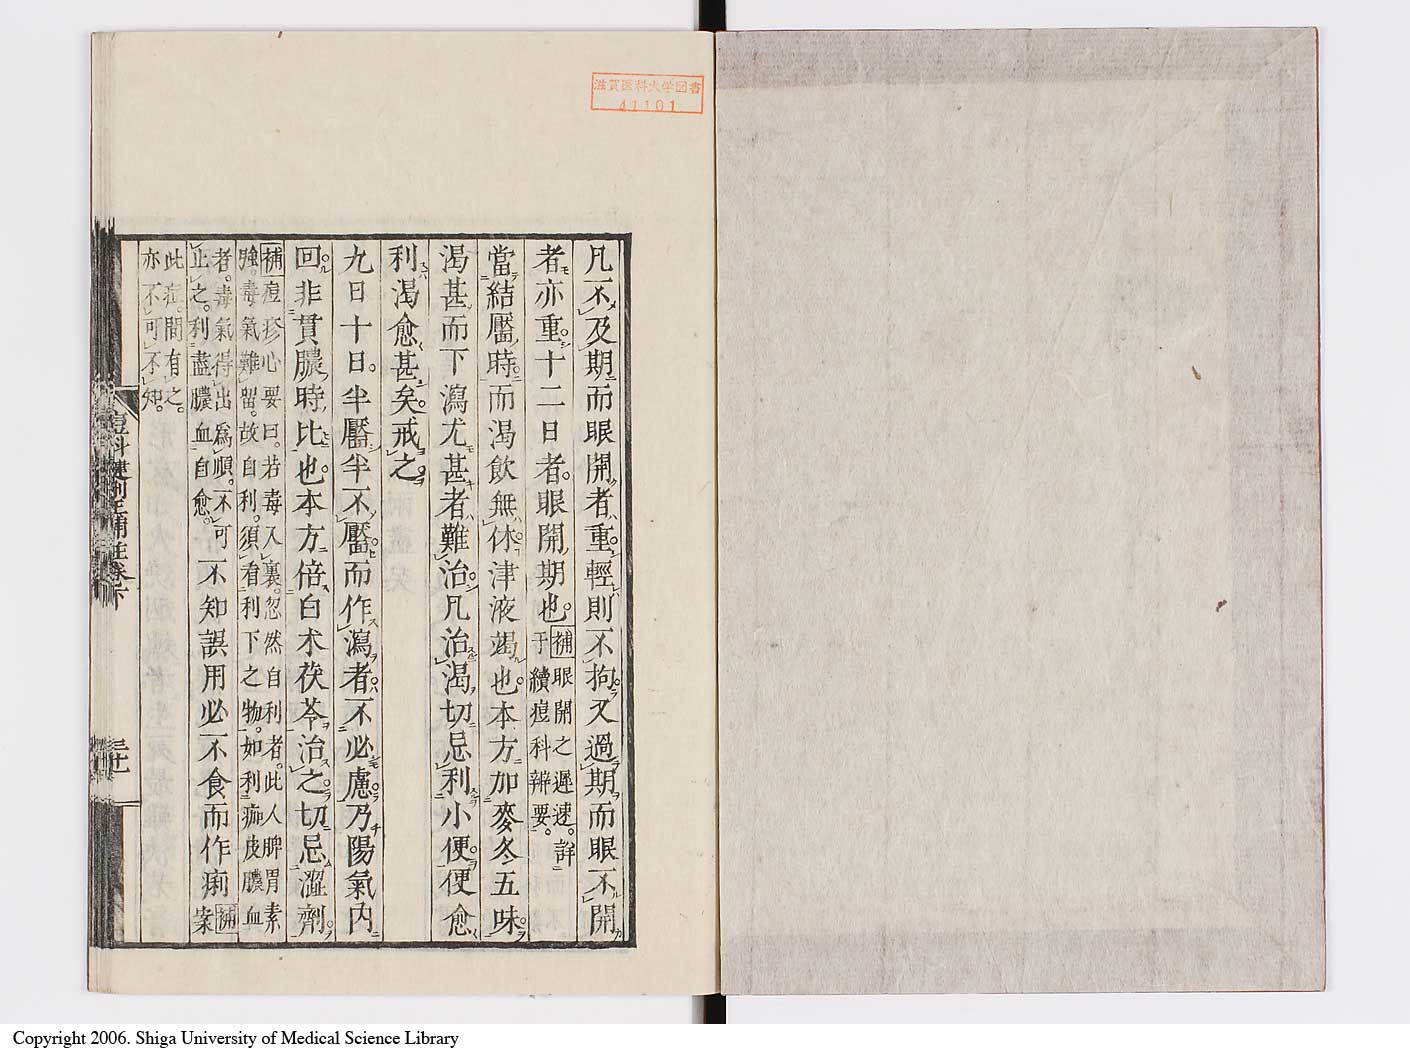 滋賀医科大学図書
41101
凡不及期而眼開者重輕則不拘又過期而眼不開
者亦重十二日者眼開期也補眼開之遲速詳
于續痘科辨要
當結靨時而渴飲無休津液竭也本方加麥冬五味
渴甚而下瀉尤甚者難治凡治渴切忌利小便便愈
利渴愈甚矣戒之
九日十日半靨半不靨而作瀉者不必慮乃陽氣內
回非貫膿時比也本方倍白朮茯苓治之切忌澀劑
補痘疹心要曰若毒入裏忽然自利者此人脾胃素
強毒氣難留故自利須看利下之物如利痂皮膿血
者毒氣得出為順不可
止之利盡膿血自愈
不知誤用必不食而作痢補案
此症間有之
亦不可不知
痘科鍵刪正補註卷下
三十一
Copyright 2006. Shiga University of Medical Science Library